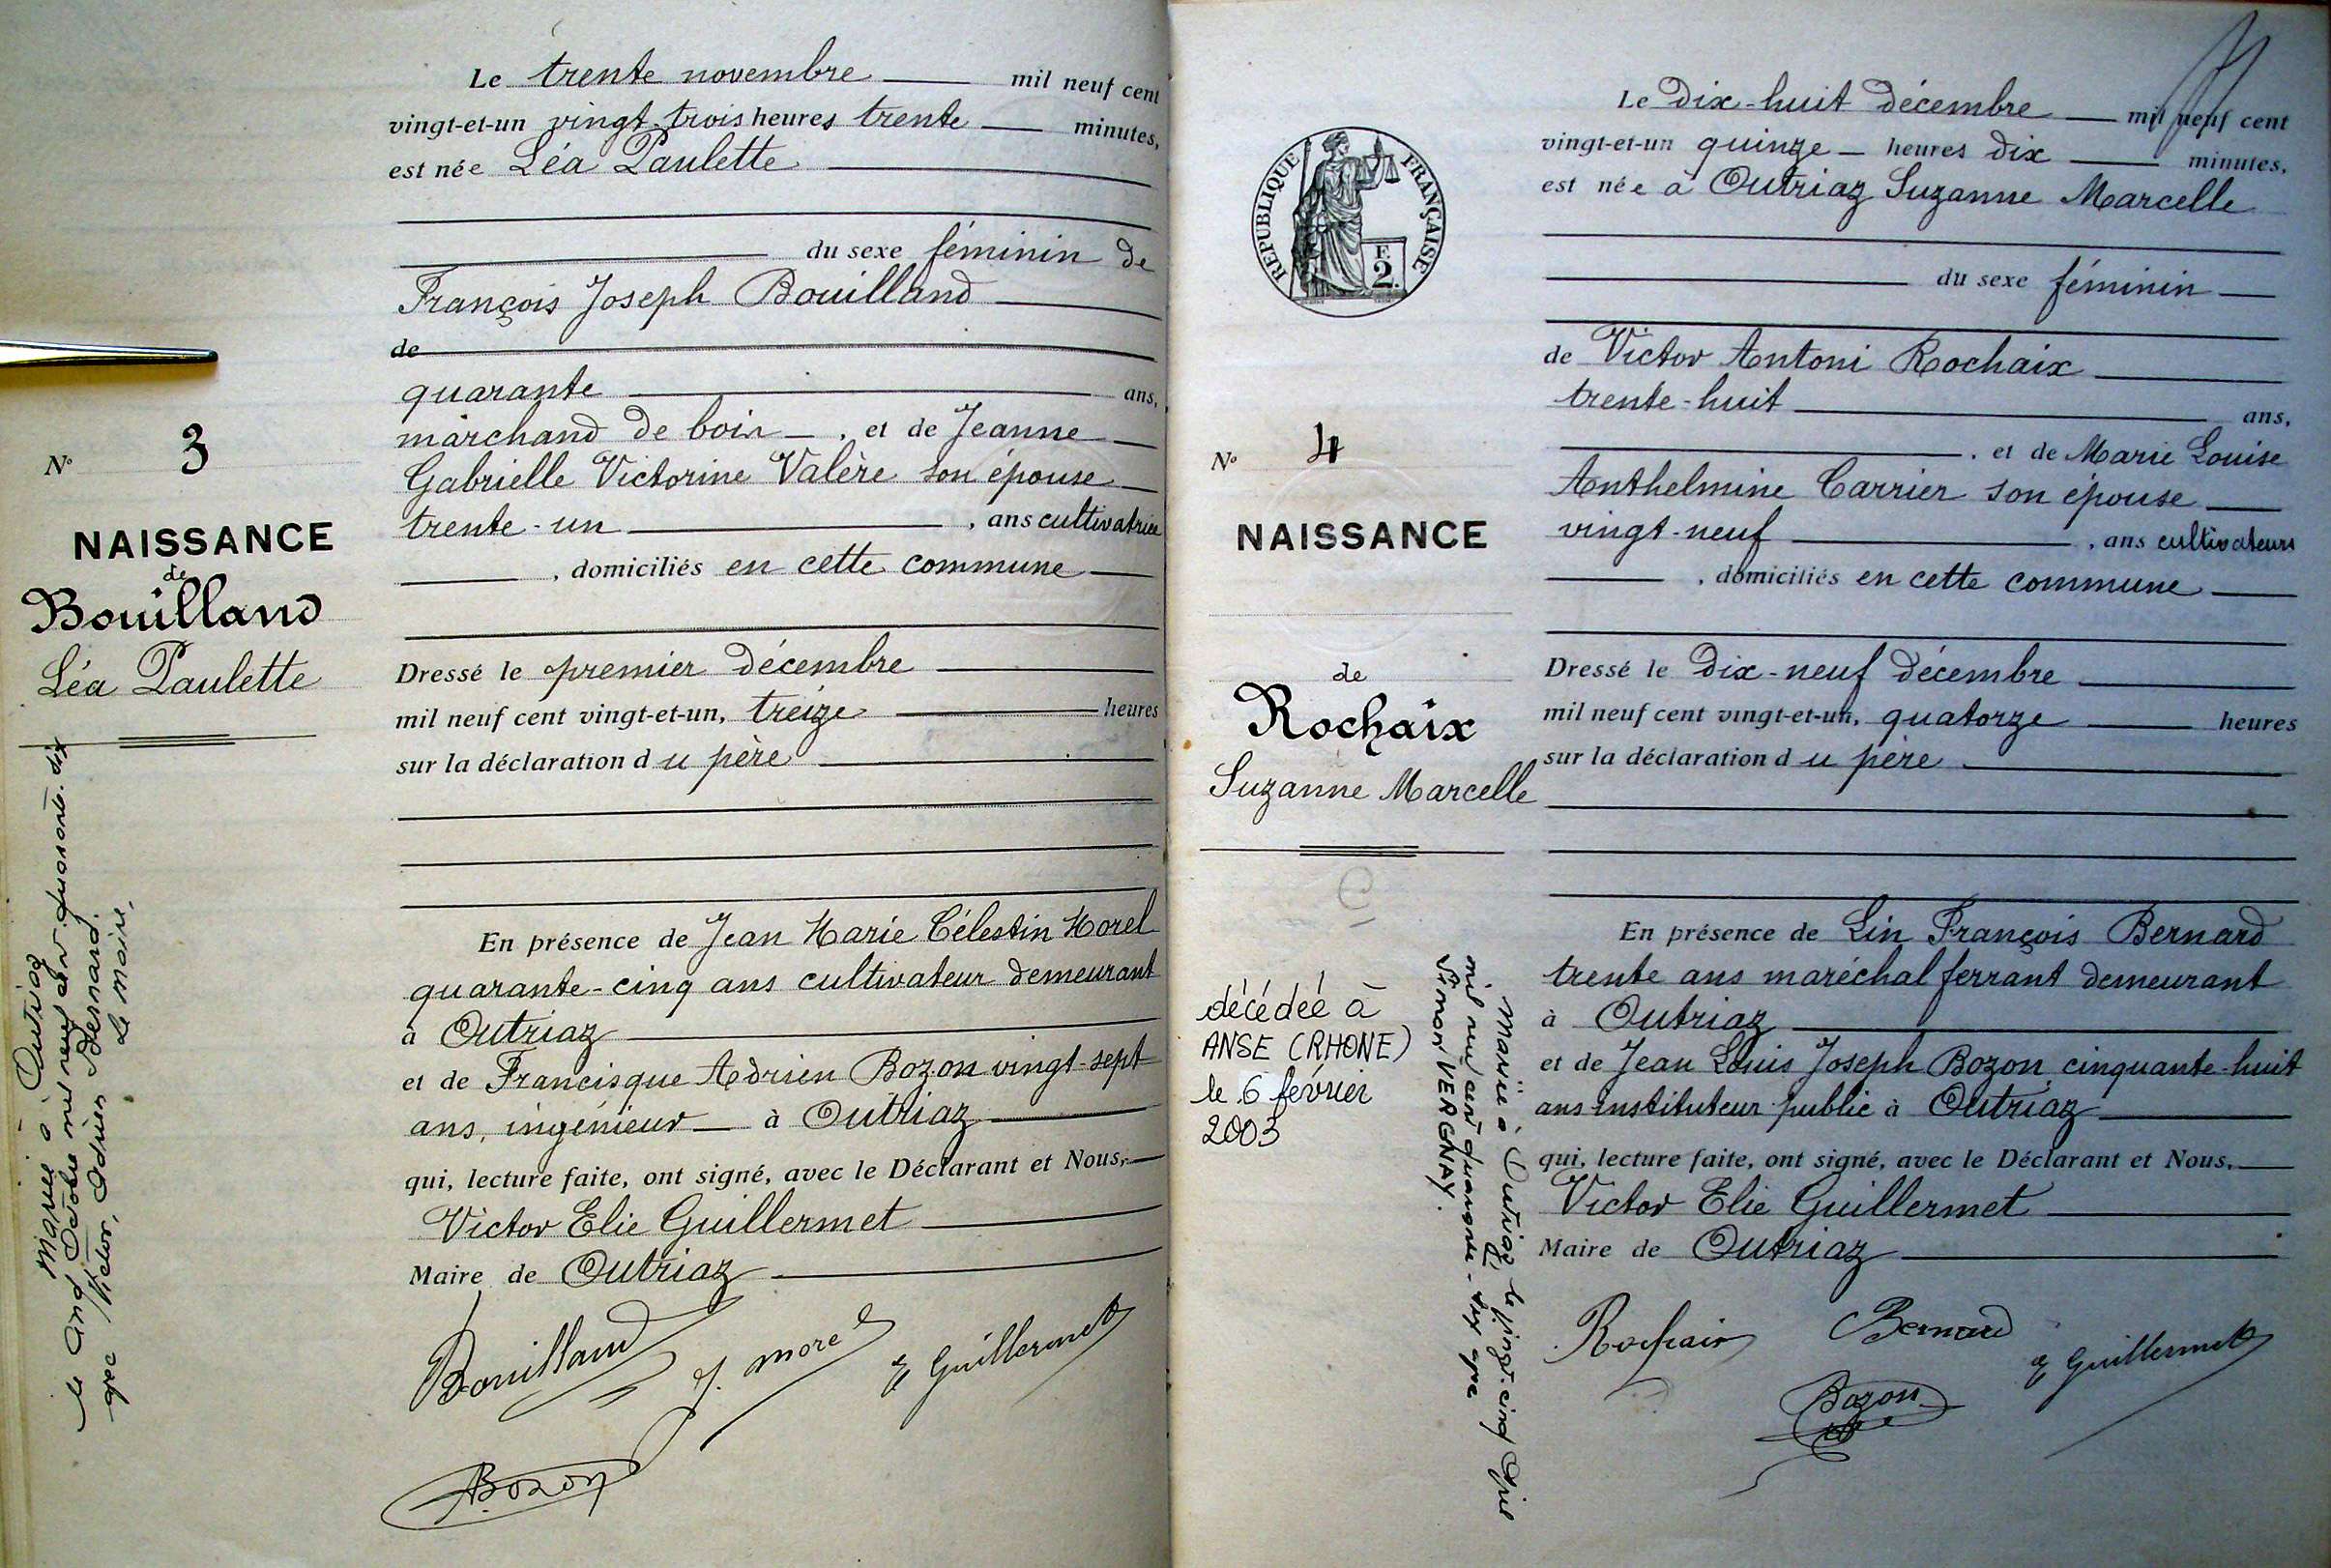 Le trente novembre mil neuf cent
vingt-et-un vingt-trois heures trente minutes,
est née Léa Paulette
du sexe féminin de
François Joseph Bouilland
de
quarante ans,
marchand de bois, et de Jeanne
Gabrielle Victorine Valère son épouse
trente-un, ans cultivatrice
, domiciliés en cette commune
Dressé le premier décembre
mil neuf cent vingt-et-un, treize heures
sur la déclaration du père
En présence de Jean Marie Célestin Morel
quarante-cinq ans cultivateur demeurant
à Outriaz
et de Francisque Adrien Bozon vingt-sept
ans, ingénieur à Outriaz
qui, lecture faite, ont signé, avec le Déclarant et Nous,
Victor Elie Guillermet
Maire de Outriaz
Bouilland
J. Morel
E Guillermet
Bozon
N° 3
NAISSANCE
de
Bouilland
Léa Paulette
Mariée à Outriaz
le cinq Octobre mil neuf cent quarante-dix
avec Victor, Adrien Bernard.
Le maire,
REPUBLIQUE FRANÇAISE
F.
2.
N° 4
NAISSANCE
de
Rochaix
Suzanne Marcelle
décédée à
ANSE (RHONE)
le 6 février
2003
Mariée à Outriaz, le vingt-cinq
mil neuf cent quarante-six avec
Simon VERGNAY.
Le dix-huit décembre mil neuf cent
vingt-et-un quinze heures dix minutes,
est née à Outriaz Suzanne Marcelle
du sexe féminin
de Victor Antoni Rochaix
trente-huit ans,
, et de Marie Louise
Anthelmine Carrier son épouse
vingt-neuf, ans cultivateurs
, domiciliés en cette commune
Dressé le dix-neuf décembre
mil neuf cent vingt-et-un, quatorze heures
sur la déclaration du père
En présence de Lin François Bernard
trente ans maréchal ferrant demeurant
à Outriaz
et de Jean Louis Joseph Bozon, cinquante-huit
ans instituteur public à Outriaz
qui, lecture faite, ont signé, avec le Déclarant et Nous,
Victor Elie Guillermet
Maire de Outriaz
Rochaix
Bernard
E Guillermet
Bozon